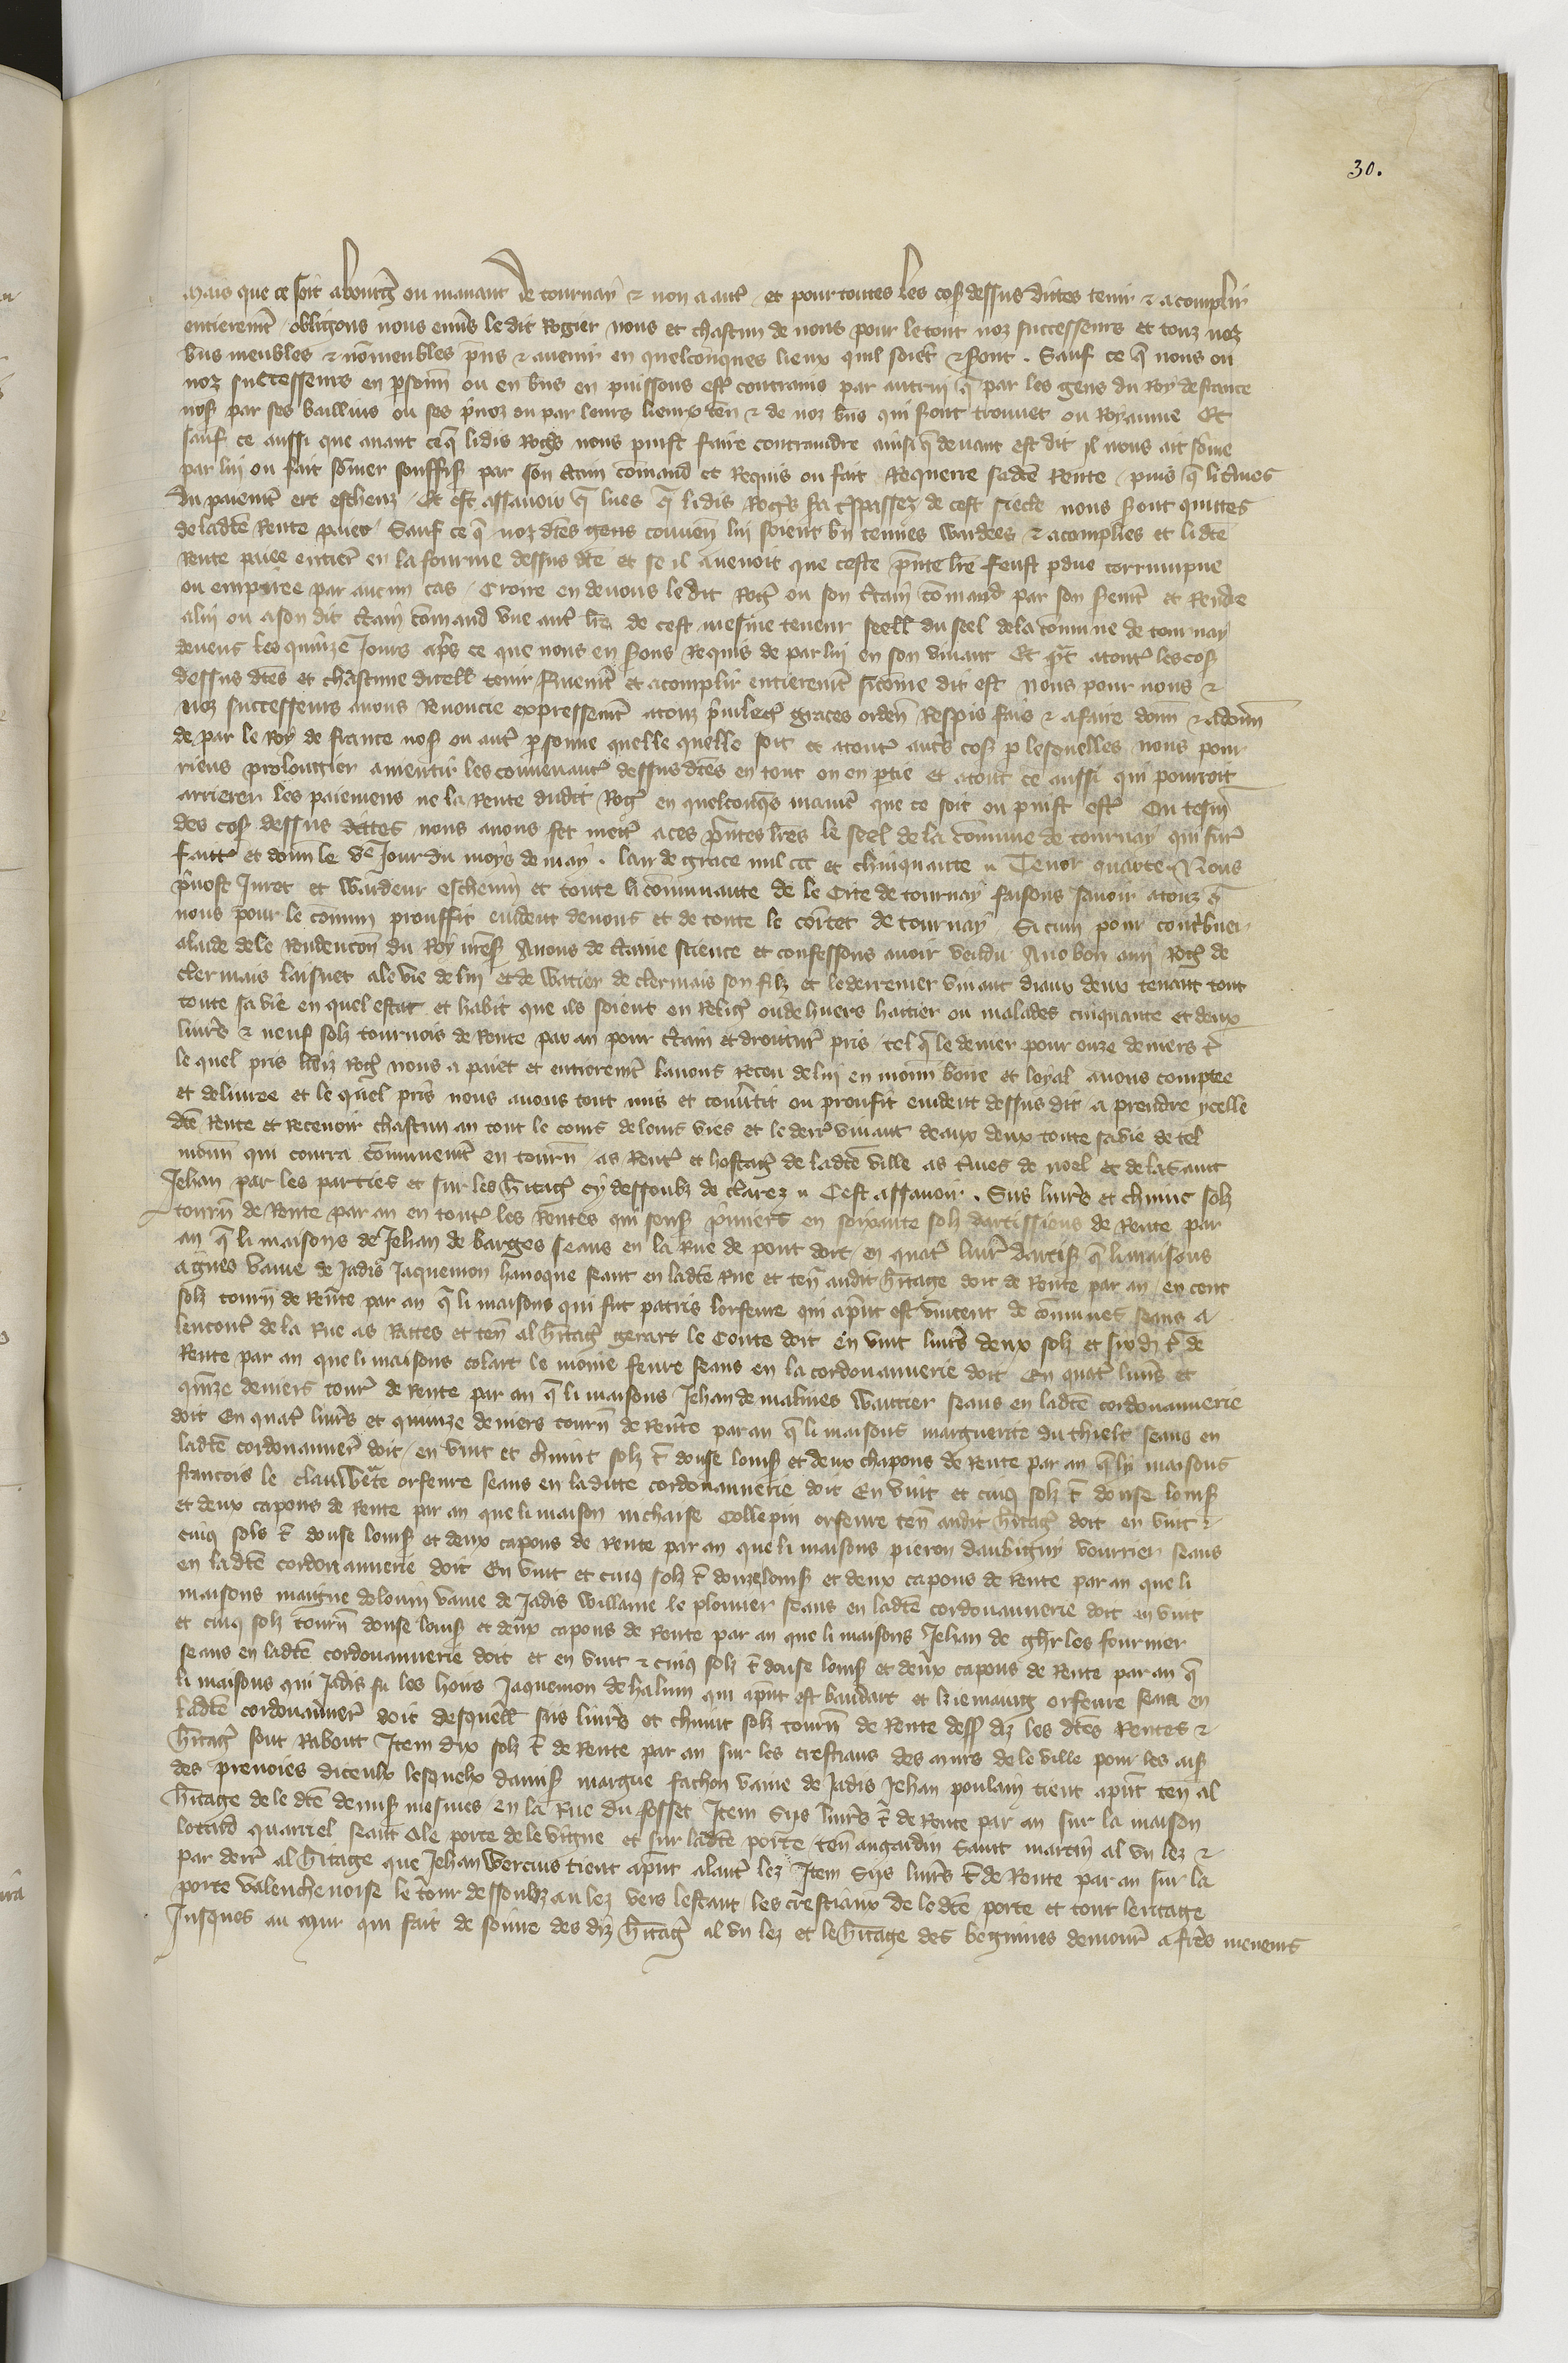 30.
mais que ce soit abourg̃ ou manant de tournay ⁊ non a aut̃ et pour toutes les cos dessus dittes tenir ⁊ acomplir
entieremt̃ obligons nous enũs le dit Rogier nous et chascun de nous pour le tout noz successeurs et touz noz
biẽs meubles ⁊ nõmeubles p̃ns ⁊ auenir en quelconques lieux quil soiẽt ⁊ sont . Sauf ce q̃ nous ou
noz successeurs en p̃sonn ou en biẽs en puissons est̃ contrains par autrui q̃ par les gens du Roy de france
nos par ses baillius ou ses p̃uoz ou par leurs lieux teñ ⁊ de noz biẽs qui sont trouuet ou Royaume Et
sauf ce aussi que auant ce q̃ li dis Rog̃s nous puist faire contraindre ainsi q̃ deuant est dit il nous ait sõme
par lui ou fait sõmer souffis par son c̃tain cõmand et Requis ou fait Requerre sa dc̃e Rente puis q̃ li t̃mes
du paiemt̃ ert escheuz Et est assauoir q̃ lues q̃ li dis Rog̃s sa t̃spassez de cest siecle nous sont quittes
de la dc̃e Rente paier Sauf ce q̃ noz dc̃es gens conuen lui soient bñ tenues wardees ⁊ acomplies et li dc̃e
Rente paiee entier̃ en la fourme dessus dc̃e et se il auenoit que ceste p̃nte lr̃e feust p̃due corrumpue
ou empiree par aucun cas Croire en deuons le dit Rog̃ ou son c̃tain cõmand par son seremt̃ et Rendre
a lui ou a son dit c̃tain cõmand vne aut̃ lr̃e de cest mesme teneur seell du seel de la cõmune de tournay
deuens les quinze Jours ap̃s ce que nous en sons Requis de par lui en son viuant Et q̃t a tout̃ les cos
dessus dc̃es et chascune dicell tenir feremt̃ et acomplir entieremt̃ sicõme dit est nous pour nous ⁊
noz successeurs auons Renoncie expressemt̃ a touz p̃uileg̃ graces orden Respis fais ⁊ a faire donn ⁊ adonn
de par le Roy de france nos ou aut̃ p̃sonne quelle quelle soit et a tout̃ aut̃s cos p̃ lesquelles nous pour
riens prolongier amentir les conuenant̃ dessus dc̃es en tout ou en p̃tie et a tout ce aussi qui pourroit
arrierer les paiemens ne la Rente dudit Rog̃ en quelconq̃s manier̃ que ce soit ou puist est̃ On tesm̃
des cos dessus dittes nous auons fet mett̃ a ces p̃ntes lr̃es le seel de la cõmune de tournay qui sur̃
faitt̃ et donn le vᵉ Jour du moys de may . lan de grace mil ccc et chinquante Tenor quarte Nous
p̃uost Juret et wardeur escheuin et toute li cõmunaute de le Cite de tournay faisons sauoir a touz q̃
nous pour le cõmun prouffit euident de nous et de toute le cõrtet de tournay Si cum pour contribuer
a laide de le Rendencõn du Roy nres̃ Auons de c̃taine science et confessons auoir vendu A no bon amy Rog̃ de
clermais laisnet a le vie de lui et de watier de clermais son filz et le derrenier viuant diaux deux tenant tout
toute sa vie en quel estat et habit que ils soient en Relig̃ ou dehuers haitier ou malades cinquante et deux
liur̃s ⁊ neuf solz tournois de Rente par an pour c̃tain et droiturr̃ pris tel q̃ le denier pour onze deniers t̃
le quel pris li diz Rog̃ nous a paiet et entieremt̃ lauons Receu de lui en monn boine et loyal auons comptee
et deliuree et le quel pris nous auons tout mis et conũtit ou proufit euident dessus dit a prendre ycelle
dc̃e Rente et receuoir chascun an tout le cours de leurs vies et le derr̃ viuant deaux deux toute sa vie de tel
monn qui courra cõmunemt̃ en tourn as Rent̃ et hostag̃ de la dc̃e ville as t̃mes de noel et de la saint
Jehan par les parties et sur les h̃itag̃ cy dessoubz declarez Cest assauoir . Siis liur̃s et chiunc solz
tourn de Rente par an en tout̃ les Rentes qui sensi p̃miers en soixante solz dartissiens de Rente par
an q̃ li maisons de Jehan de barges seans en la Rue de pont doit en quat̃ liur̃ dartis̃ q̃ li maisons
agnes vaine de Jadis Jaquemon hanoque seant en la dc̃e Rue et ten̄ audit h̃itage doit de Rente par an en cent
solz tourn de Rente par an q̃ li maisons qui fut patris lorfeure qui ap̃nt est vincent de cõmines seans a
lencont̃ de la Rue as Rattes et ten̄ al h̃itag̃ gerart le Conte doit en vint liur̃s deux solz et six d̃ t̃ de
Rente par an que li maisons colart le moine feure seans en la cordouannerie doit En quat̃ liur̃s et
quinze deniers tour̃ de Rente par an q̃ li maisons Jehan de malines Wantier seans en la dc̃e cordouannerie
doit En quat̃ liur̃s et quinze deniers tourn de Rente par an q̃ li maisons marguerite du thielt seans en
la dc̃e cordouannier̃ doit en vint et chiunc solz t̃ douse louis̃ et deux chapons de Rente par an q̃ lis maisons
francois le clauwet̃e orfeure seans en la ditte cordouannerie doit En vint et cinq solz t̃ douse louis̃
et deux capons de Rente par an que li maison nichaise Collepin orfeure ten̄ audit h̃itag̃ doit en vint ⁊
cinq sols t̃ douse louis̃ et deux capons de Rente par an que li maisons pieron daubigny vourrier seans
en la dc̃e cordouannerie doit En vint et cinq solz t̃ douze louis̃ et deux capons de Rente par an que li
maisons maigne de louin vaine de Jadis willaume le plommer seans en la dc̃e cordouannerie doit en vint
et cinq solz tourn douse louis̃ et deux capons de Rente par an que li maisons Jehan de ghr̃les fournier
seans en la dc̃e cordouannerie doit et en vint ⁊ cinq solz t̃ douse louis̃ et deux capons de Rente par an q̃
li maisons qui Jadis fu les hoirs Jaquemon de halluin qui ap̃nt est baudart et orfeure seans en
la dc̃e cordouannier̃ doit desquell siis liur̃s et chiunc solz tourn de Rente dess̃ diz les dc̃es Rentes ⁊
h̃itag̃ sont Rabout Item dix solz t̃ de Rente par an sur les crestiaus des murs de le ville pour les ais̃
des preuoies diceulx lesquelx damis̃ margue fachon vaine de Jadis Jehan poulain tient ap̃nt ten̄ al
h̃itage de le dc̃e demis̃ mesmes en la Rue du fosset Item Siis liur̃s t̃ de Rente par an sur la maison
lottard quarrel seant a le porte de le vigne et sur la dc̃e porte ten̄ au gardin saint martin al vn lez ⁊
par derr̃ al h̃itage que Jehan Wercins tient ap̃nt a laut̃ lez Item Siis liur̃s t̃ de Rente par an sur la
porte valenchenoise le tour dessoubz au lez vers lestant les crestiaux de le dc̃e porte et tout leritage
Jusques au mur qui fait de soinne des diz h̃itag̃ al vn lez et le h̃itage des beginnes demour̃ a frer̃s meneurs